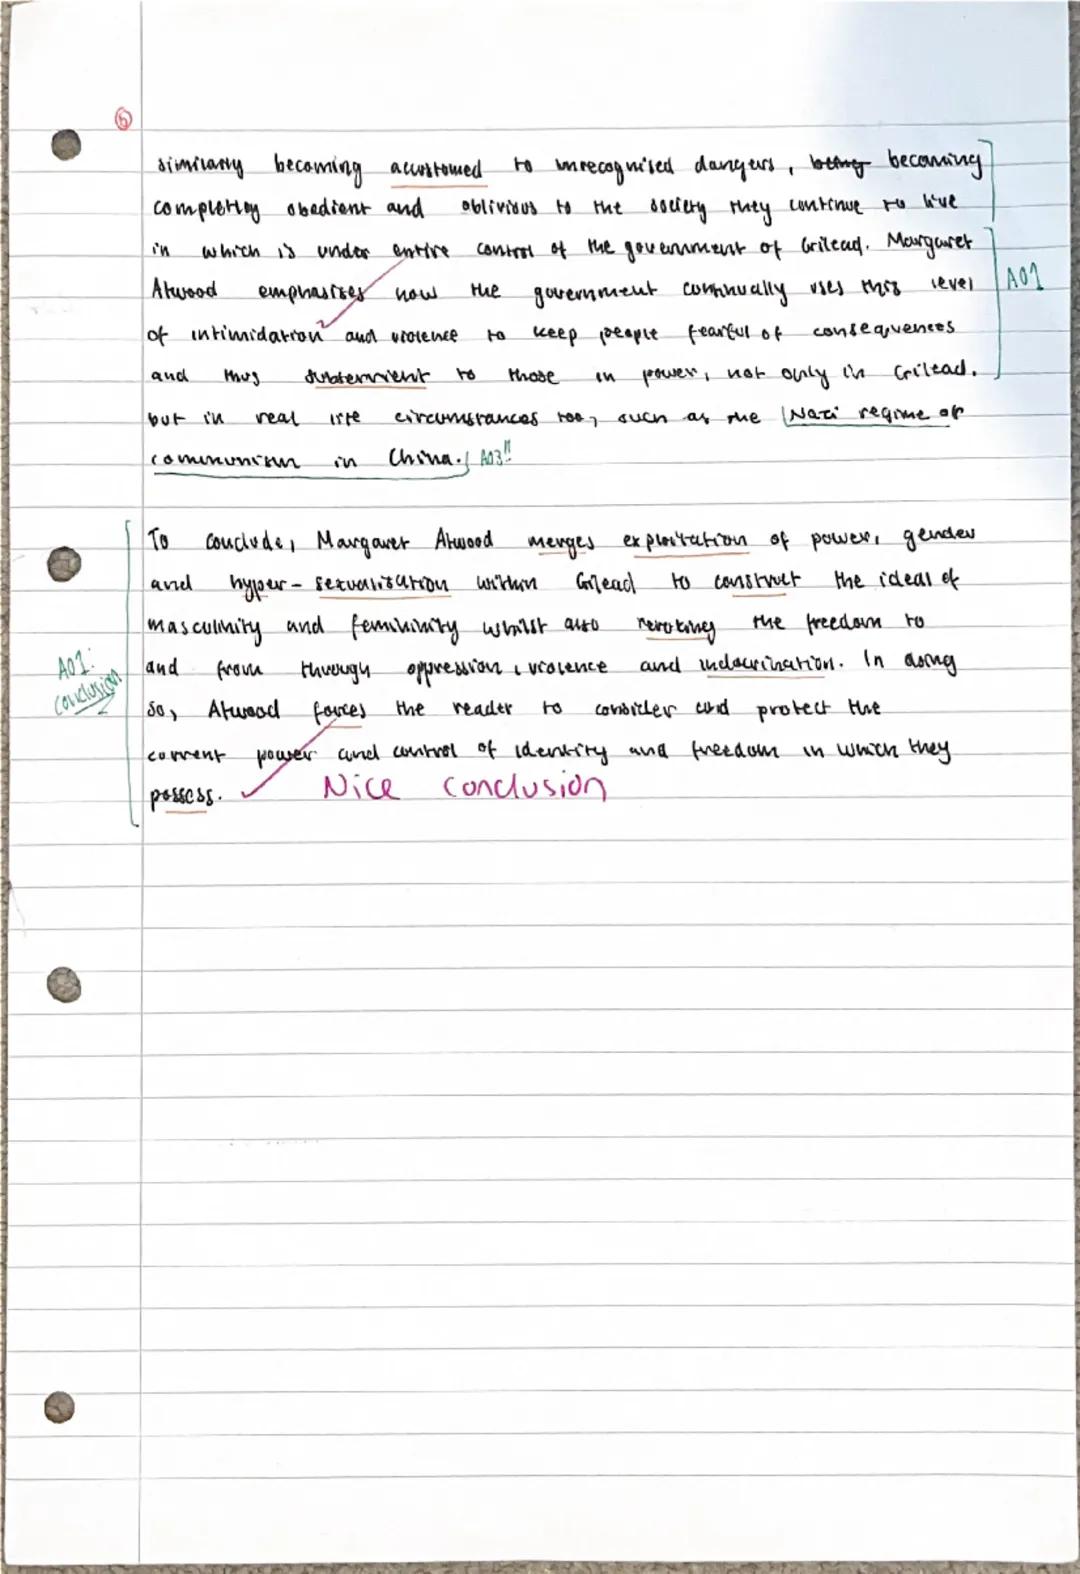 6
similarly becoming accustomed to unrecognised dangers, being becoming
completley obedient and oblivious to the society they continue to live
in which is under entire control of the government of Gilead. Margaret
Atwood emphasises how the government continually uses this level
A01
of intimidation and violence to keep people fearful of consequences
and thus subservient to those in power, not only in Gilead,
but in real life circumstances too, such as the Nazi regime or
communism in China. A03!!
To conclude, Margaret Atwood merges exploitation of power, gender
and hyper-sexualisation within Gilead to construct the ideal of
masculinity and femininity whilst also revoking the freedom to
A01:
conclusion
and from through oppression, violence and indocrination. In doing
so, Atwood forces the reader to consider and protect the
current power and control of identity and freedom in which they
possess. Nice conclusion